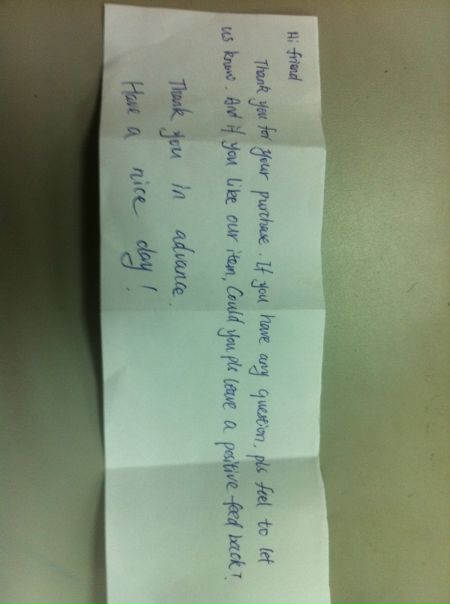 Hi friend
Thank you for your purchase. If you have any question, pls feel to let
us know. And if you like our item, Could you pls leave a positive feed back?
Thank you in advance.
Have a nice day!